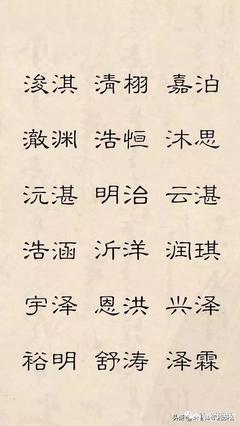 浚淇 清栩 嘉泊
澈渊 浩恒 沐思
沅湛 明治 云湛
浩涵 沂洋 润琪
宇泽 恩洪 兴泽
裕明 舒涛 泽霖